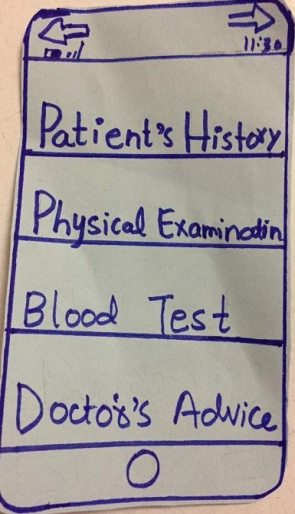 11:30
Patient's History
Physical Examination
Blood Test
Doctor's Advice